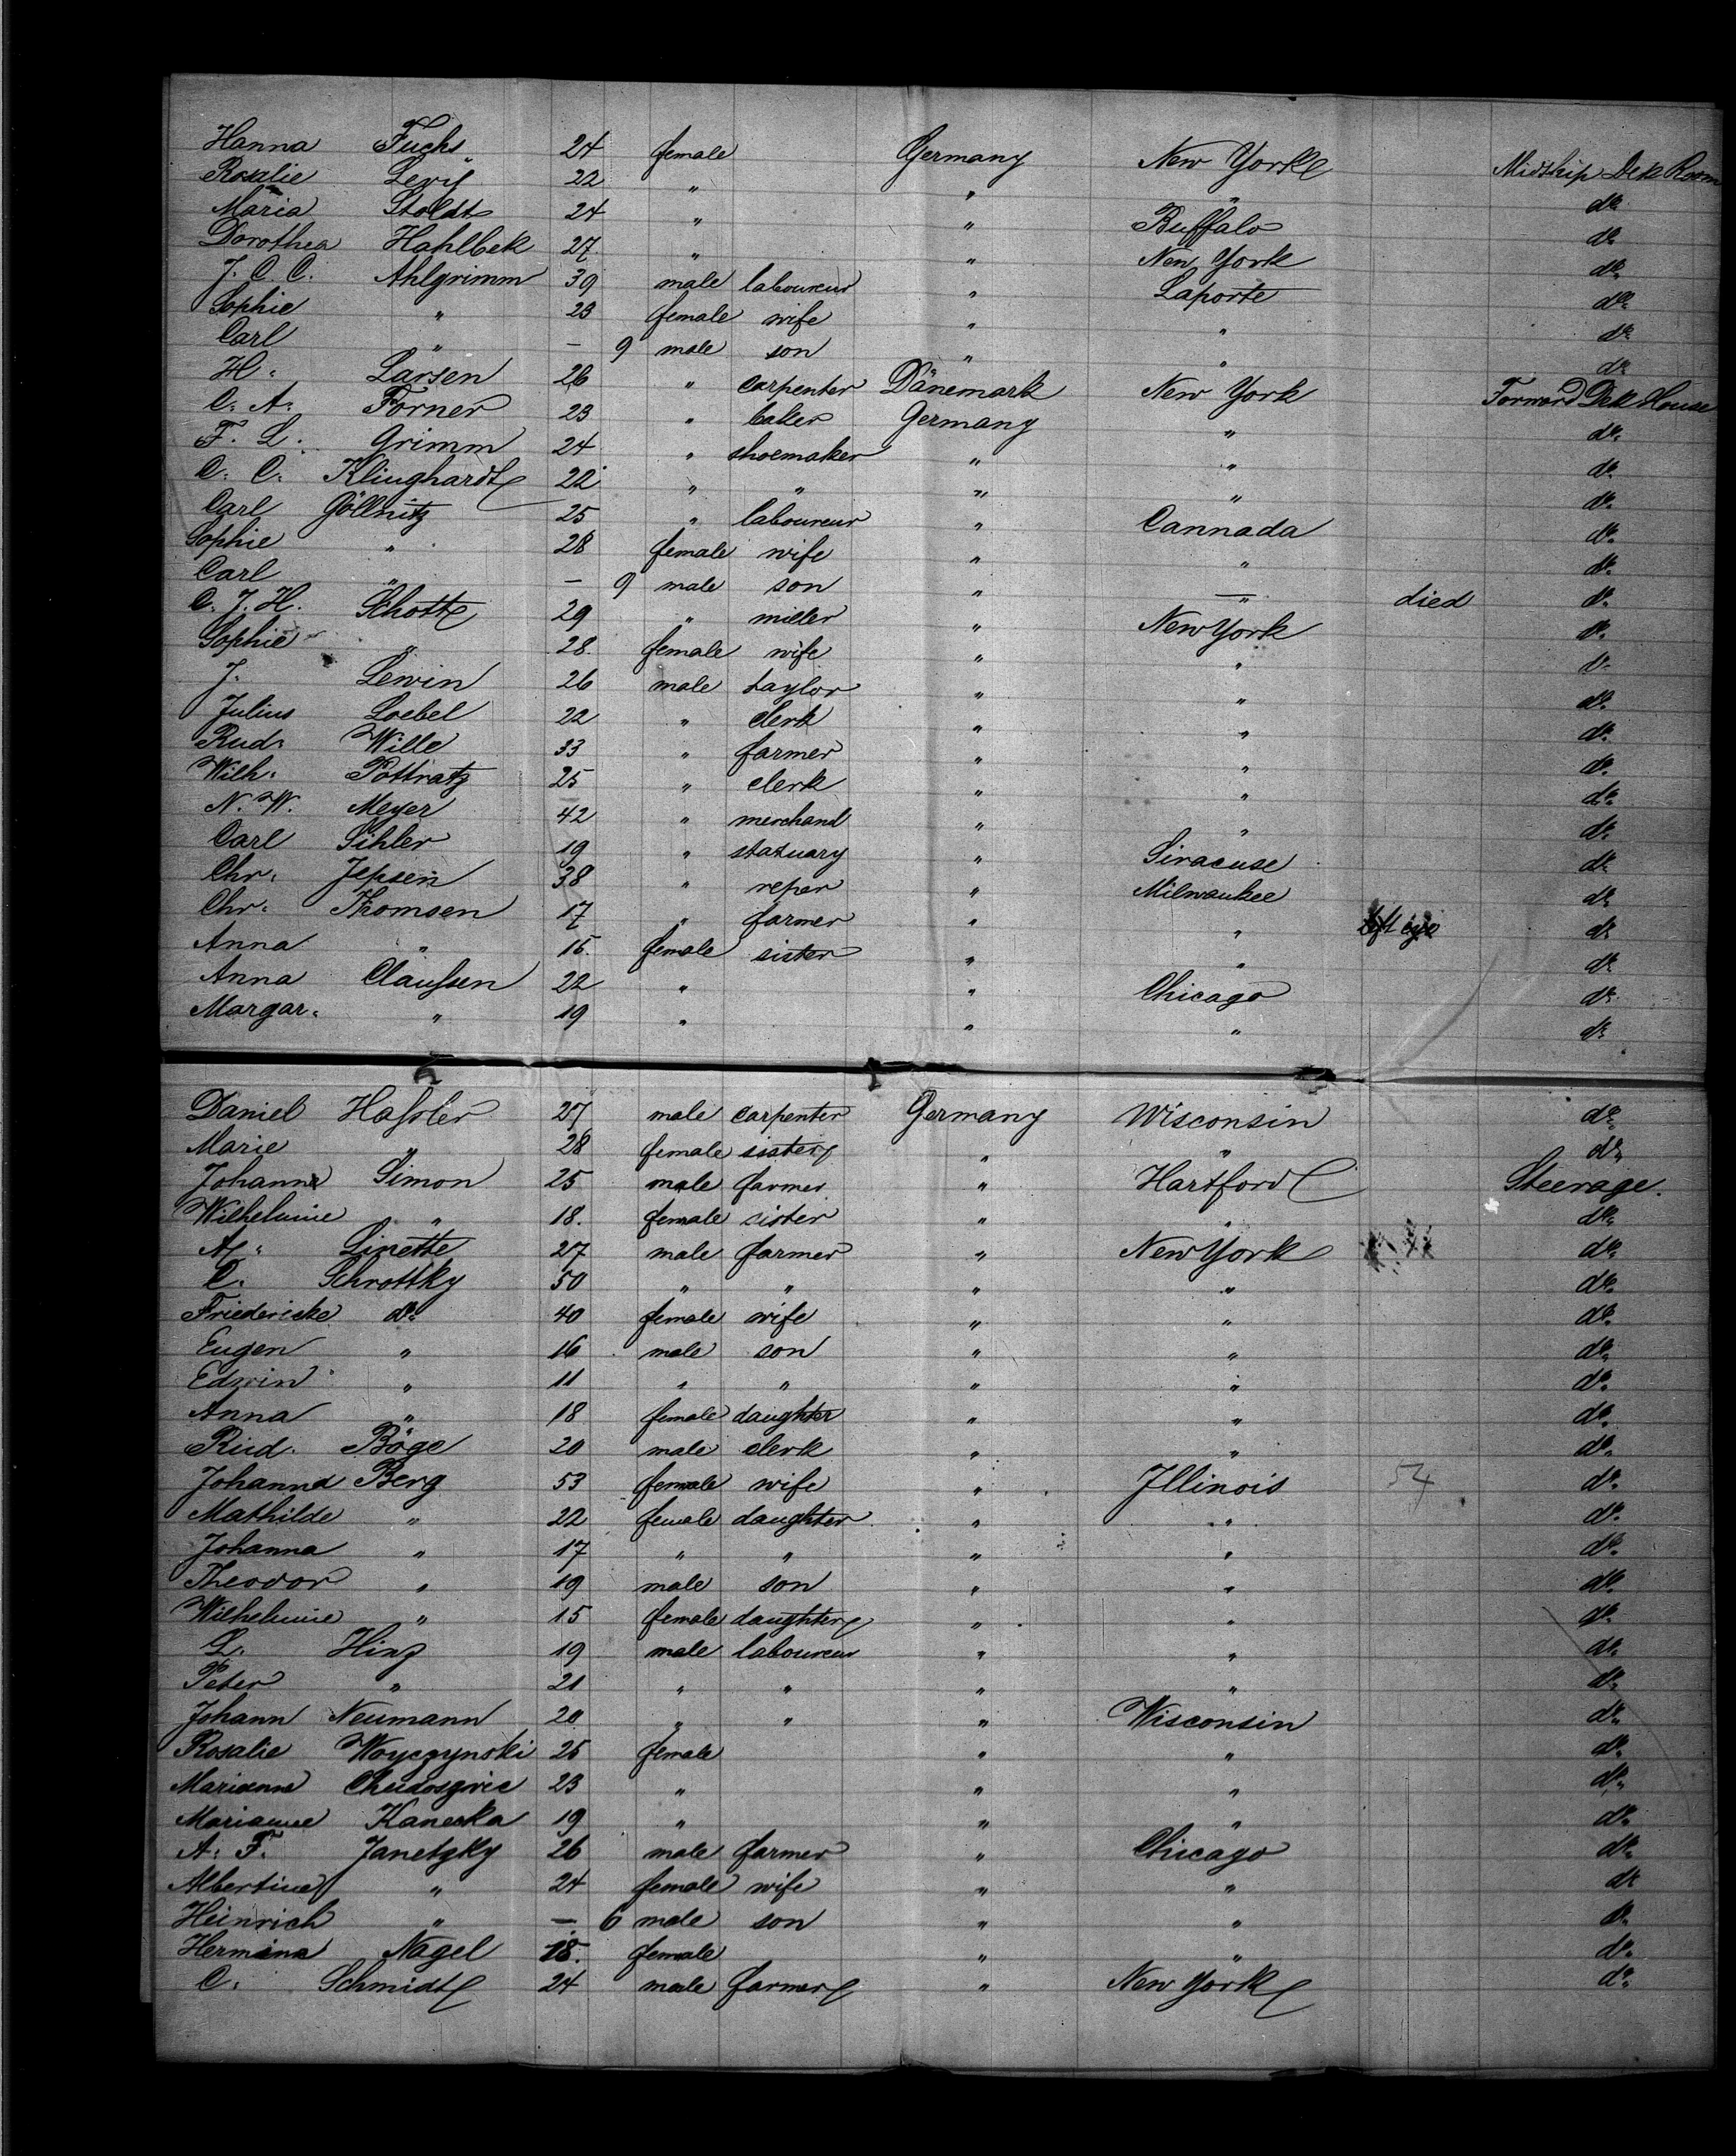 Hanna Fuchs 24 female Germany New York Midship Dek Room
Rosalie Levy 22 " " " do.
Maria Stoldt 24 " " Buffalo do.
Dorothea Hahlbek 27 " " New York do.
J. C. C. Ahlgrimm 39 male laboureur " Laporte do.
Sophie " 23 female wife " " do.
Carl " — 9 male son " " do.
H. Larsen 26 " carpenter Dänemark New York Forward Dek House
C. A. Forner 23 " baker Germany " do.
F. L. Grimm 24 " shoemaker " " do.
C. C. Klinghardt 22 " " " " do.
Carl Göllnitz 25 " laboureur " Cannada do.
Sophie " 28 female wife " " do.
Carl " — 9 male son " " died do.
C. J. H. Schott 29 " miller " New York do.
Sophie " 28. female wife " " do.
J. Lewin 26 male taylor " " do.
Julius Loebel 22 " clerk " " do.
Rud. Wille 33 " farmer " " do.
Wilh. Pottratz 25 " clerk " " do.
N. W. Meyer 42 " merchand " " do.
Carl Sihler 19 " statuary " Siracuse do.
Chr. Jepsen 38 " reper " Milwaukee do.
Chr. Thomsen 17 " farmer " " do.
Anna " 15. female sister " " do.
Anna Claussen 22 " " Chicago do.
Margar. " 19 " " " do.
Daniel Hassler 27 male carpenter Germany Wisconsin do.
Marie " 28 female sister " " do.
Johann Simon 25 male farmer " Hartford Steerage.
Wilhelmine " 18. female sister " " do.
Linette 27 male farmer " New York do.
C. Schrottky 50 " " " " do.
Friedericke do. 40 female wife " " do.
Eugen " 16 male son " " do.
Edwin " 11 " " " " do.
Anna " 18 female daughter " " do.
Rud. Böge 20 male clerk " " do.
Johanna Berg 53 female wife " Illinois 54 do.
Mathilde " 22 female daughter " " do.
Johanna " 17 " " " " do.
Theodor " 19 male son " " do.
Wilhelmine " 15 female daughter " " do.
L. Hinz 19 male laboureur " " do.
Peter " 21 " " " " do.
Johann Neumann 20 " " " Wisconsin do.
Rosalie Woyczynski 25 female " " do.
Marianne 23 " " " do.
Marianne Kanecka 19 " " " do.
A. F. Janetzky 26 male farmer " Chicago do.
Albertine " 24 female wife " " do.
Heinrich " — 6 male son " " do.
Hermine Nagel 18. female " " do.
C. Schmidt 24 male farmer " New York do.